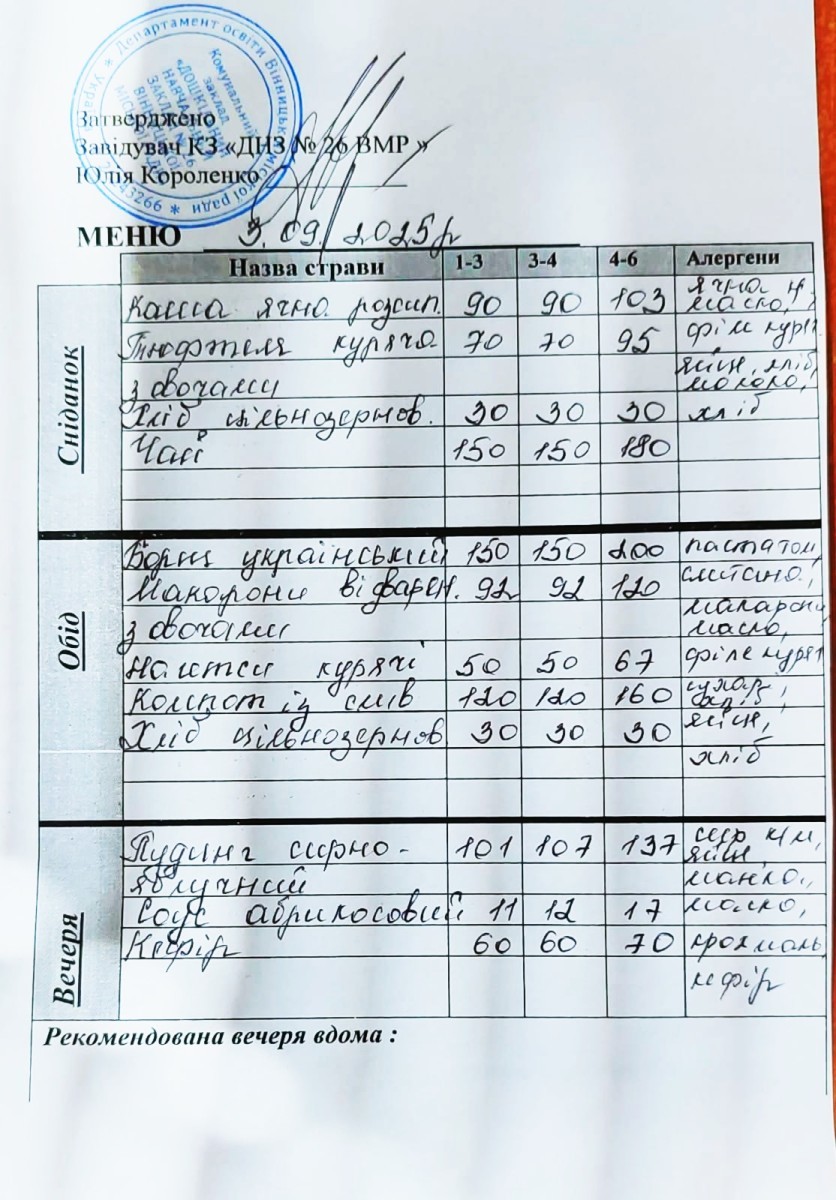 Департамент освіти Вінницької міської ради
Комунальний
заклад
«ДОШКІЛЬНИЙ
НАВЧАЛЬНИЙ
ЗАКЛАД № 26
Затверджено
Завідувач КЗ «ДНЗ № 26 ВМР »
Юлія Короленко
МЕНЮ 3.09. 2025р
Назва страви 1-3 3-4 4-6 Алергени
Сніданок
Каша ячна розсип. 90 90 103 ячна к.
масло,
Тюфтеля куряча 70 70 95 філе куряч.
з овочами яйця, хліб,
молоко,
Хліб цільнозернов. 30 30 30 хліб
Чай 150 150 180
Обід
Борщ український 150 150 200 паста том,
Макарони відварен. 92 92 120 сметана,
з овочами макарони
масло,
Нагетси курячі 50 50 67 філе куряч
Компот із слив 120 120 160 сухарі,
хліб,
Хліб цільнозернов 30 30 30 яйця,
хліб
Вечеря
Пудинг сирно- 101 107 137 сир к/м,
яйця
яблучний манка,
Соус абрикосовий 11 12 17 масло,
Кефір 60 60 70 крохмаль
кефір
Рекомендована вечеря вдома :